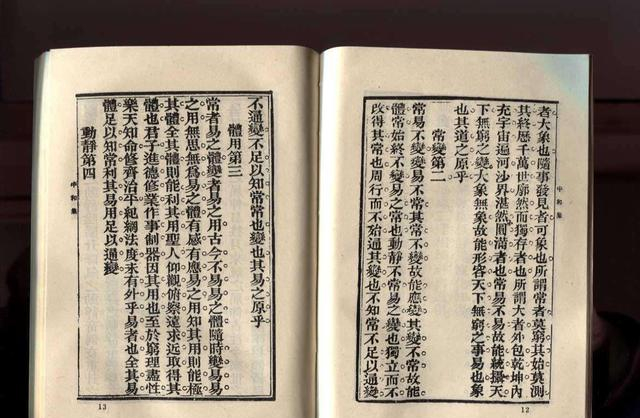 中和集
者大象也隨事發見者可象也所謂常者莫窮其始莫測
其終歷千萬世廓然而獨存者也所謂大者外包乾坤內
充宇宙遍河沙界湛然圓滿者也常易不易故能統攝天
下無窮之變大象無象故能形容天下無窮之事易也象
也其道之原乎
常變第二
常易不變變易不常其常不變故能應變其變不常故能
體常始終不變易之常也動靜不常易之變也獨立而不
改得其常也周行而不殆通其變也不知常不足以通變
12
不通變不足以知常常也變也其易之原乎
體用第三
常者易之體變者易之用古今不易易之體隨時變易易
之用無思無為易之體有感有應易之用知其用則能極
其體全其體則能利其用聖人仰觀俯察遠求近取得其
體也君子進德修業作事制器因其用也至於窮理盡性
樂天知命修齊治平紀綱法度未有外乎易者也全其易
體足以知常利其易用足以通變
動靜第四
中和集
13